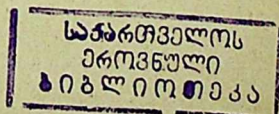 საქართველოს
ეროვნული
ბიბლიოთეკა